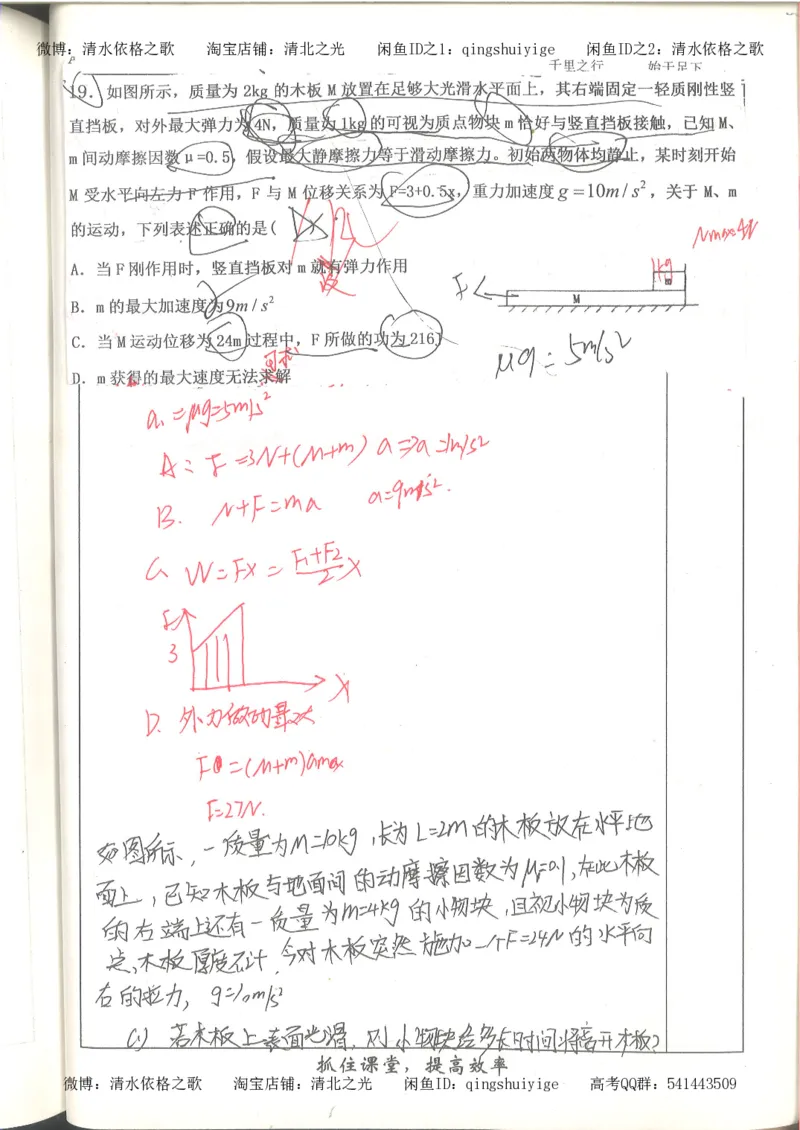 微博：清水依格之歌 淘宝店铺：清北之光 闲鱼ID之1：qingshuiyige 闲鱼ID之2：清水依格之歌
千里之行 始于足下
19. 如图所示，质量为 2kg 的木板 M 放置在足够大光滑水平面上，其右端固定一轻质刚性竖
直挡板，对外最大弹力为 4N，质量为 1kg 的可视为质点物块 m 恰好与竖直挡板接触，已知 M、
m 间动摩擦因数 μ=0.5，假设最大静摩擦力等于滑动摩擦力。初始两物体均静止，某时刻开始
M 受水平向左力 F 作用，F 与 M 位移关系为 F=3+0.5x，重力加速度 g=10m/s²，关于 M、m
的运动，下列表述正确的是(
Nmax=4N
A. 当 F 刚作用时，竖直挡板对 m 就有弹力作用
没
1kg
F
m
M
B. m 的最大加速度为 9m/s²
C. 当 M 运动位移为 24m 过程中，F 所做的功为 216J
μg=5m/s²
可求
D. m 获得的最大速度无法求解
a₁=μg=5m/s²
A: F=3N+(M+m)a⇒a=1m/s²
B. N+F=ma a=9m/s².
C. W=Fx=(F₁+F₂)/2 X
F
3
X
D. 外力做功最大
F=(M+m)amax
F=27N.
如图所示，一质量为M=10kg，长为L=2m的木板放在水平地
面上，已知木板与地面间的动摩擦因数为μ₁=0.1，在此木板
的右端上还有一质量为m=4kg的小物块，且视小物块为质
点，木板厚度不计，今对木板突然施加一个F=24N的水平向
右的拉力，g=10m/s²
(1) 若木板上表面光滑，则小物块经多长时间将离开木板？
抓住课堂，提高效率
微博：清水依格之歌 淘宝店铺：清北之光 闲鱼ID：qingshuiyige 高考QQ群：541443509